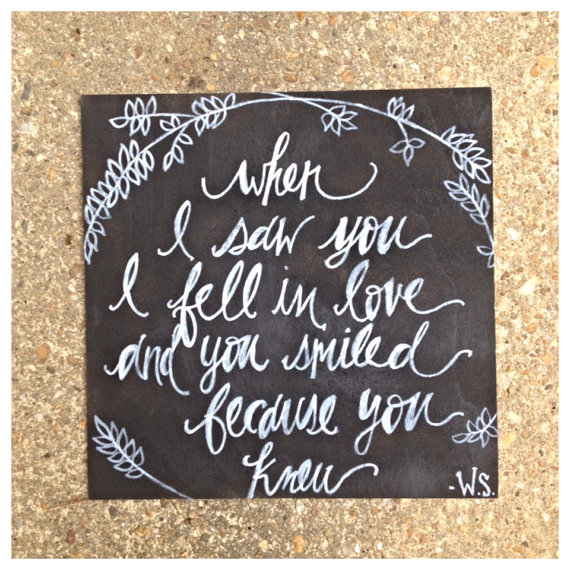 when
I saw you
I fell in love
and you smiled
because you
knew
-W.S.